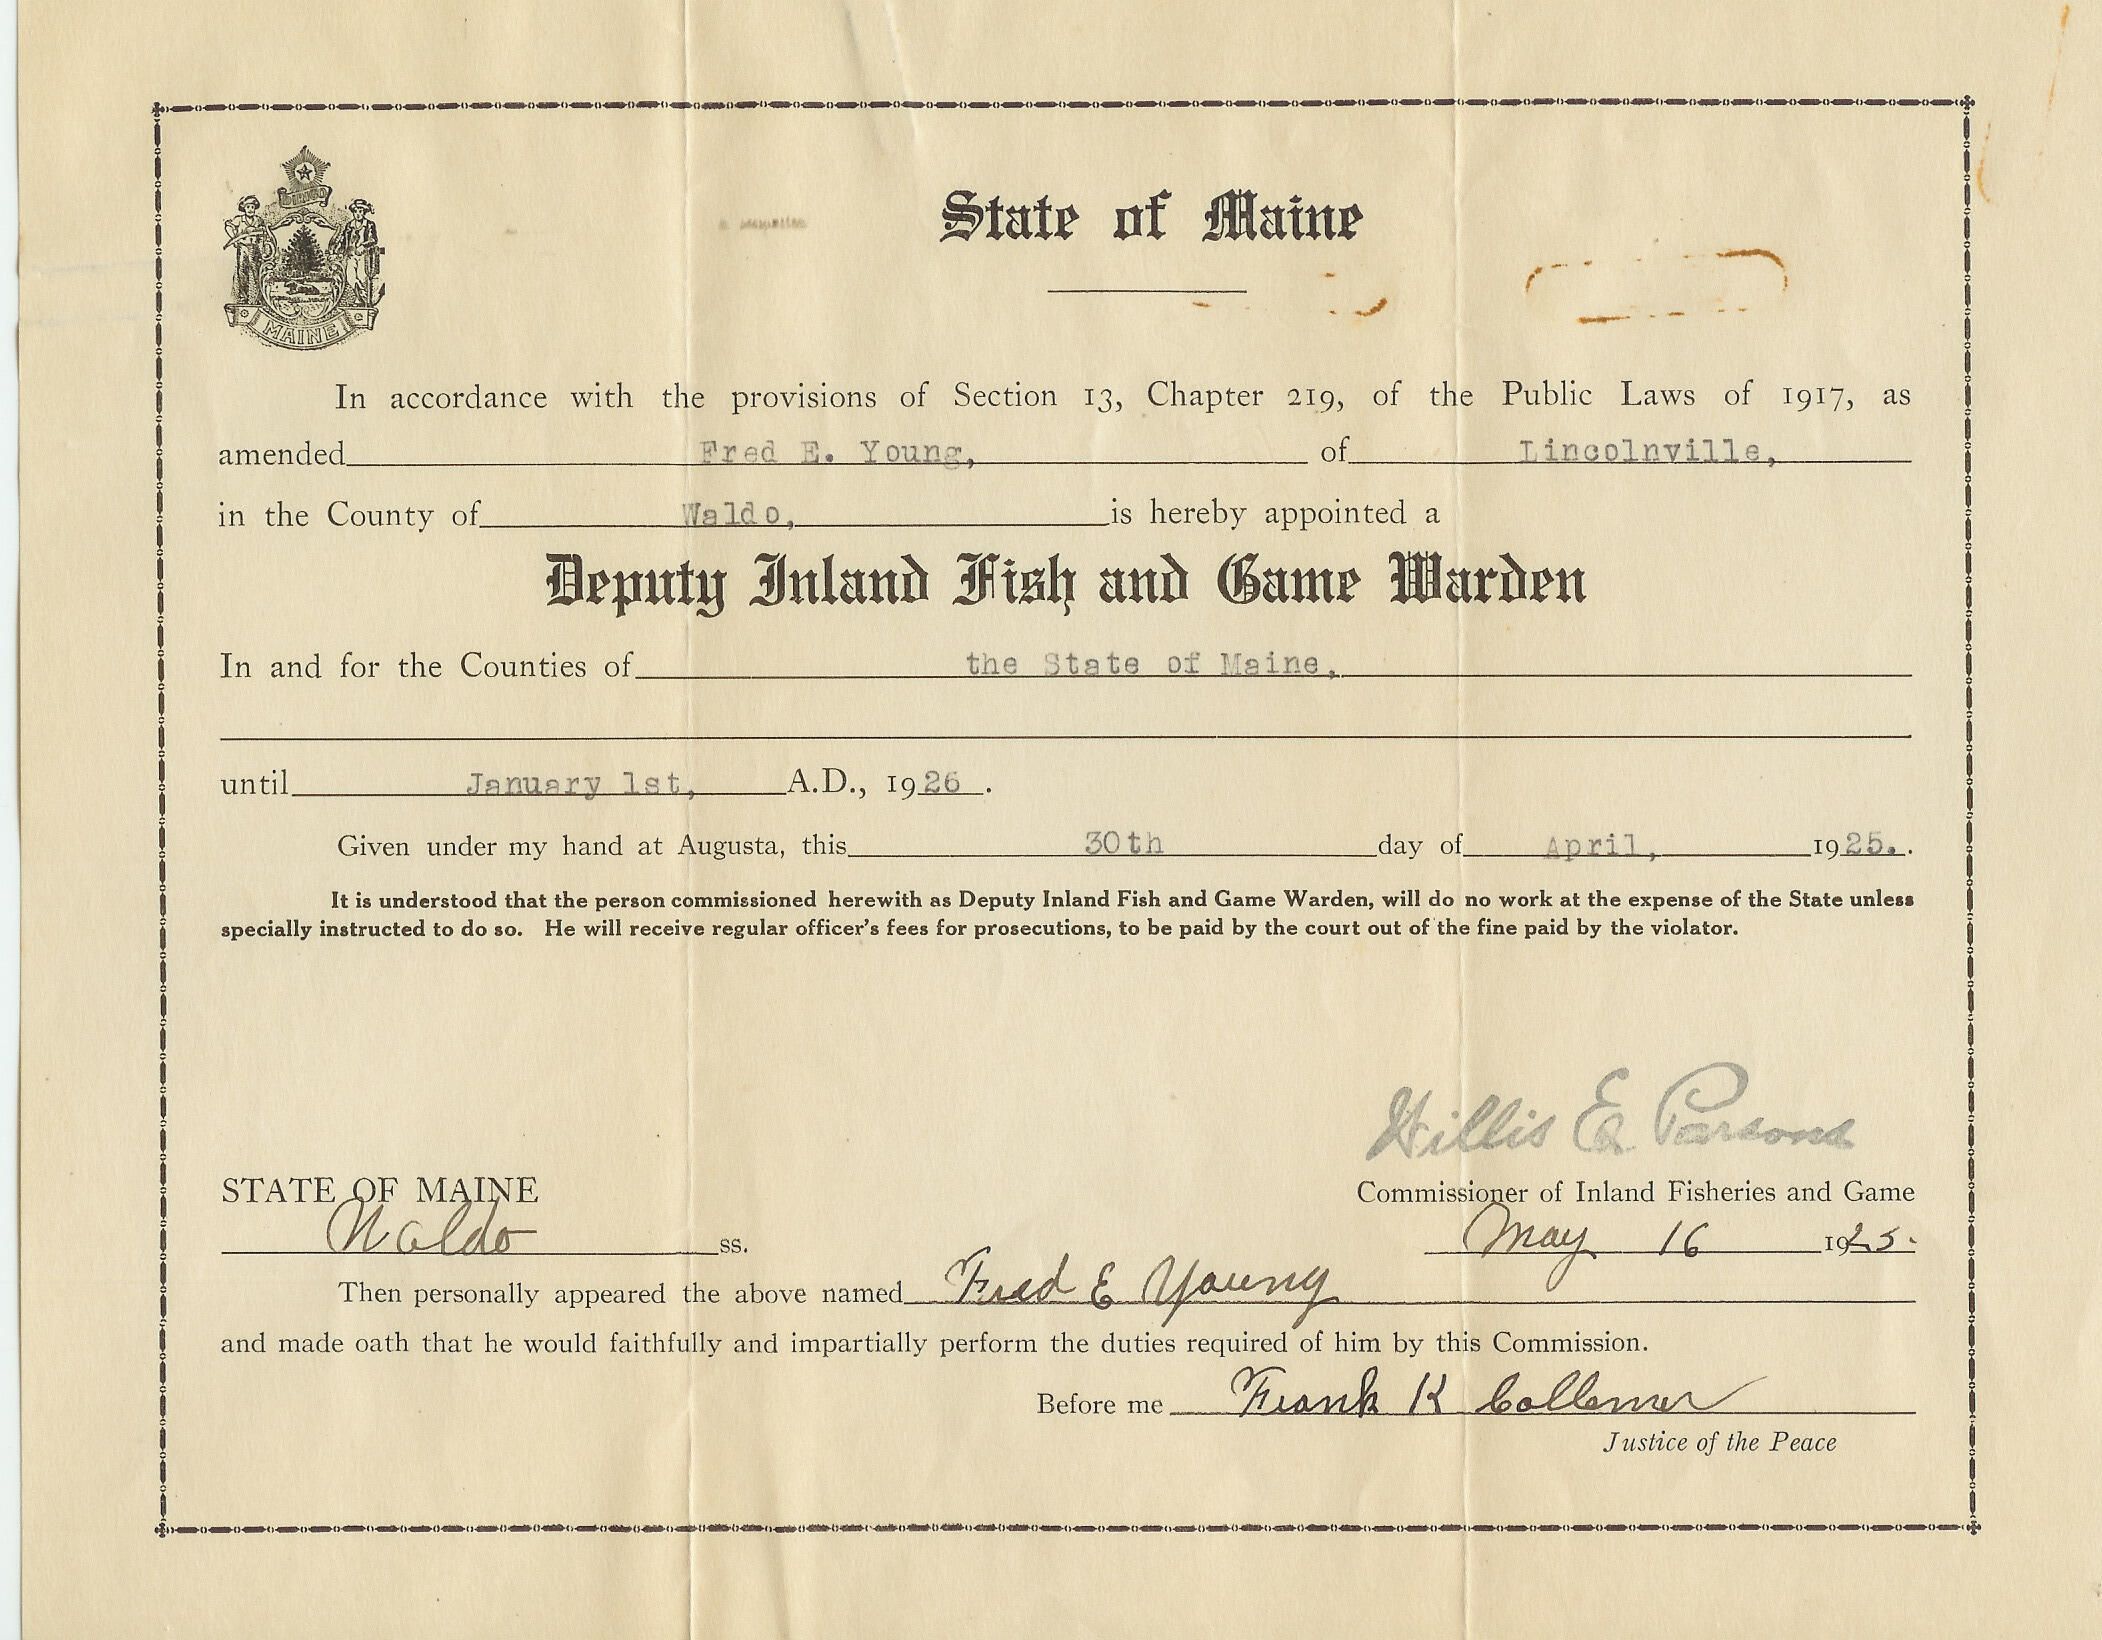 DIRIGO
MAINE
State of Maine
In accordance with the provisions of Section 13, Chapter 219, of the Public Laws of 1917, as
amended Fred E. Young, of Lincolnville,
in the County of Waldo, is hereby appointed a
Deputy Inland Fish and Game Warden
In and for the Counties of the State of Maine,
until January 1st, A.D., 1926.
Given under my hand at Augusta, this 30th day of April, 1925..
It is understood that the person commissioned herewith as Deputy Inland Fish and Game Warden, will do no work at the expense of the State unless
specially instructed to do so. He will receive regular officer's fees for prosecutions, to be paid by the court out of the fine paid by the violator.
Willis E. Parsons
STATE OF MAINE
Commissioner of Inland Fisheries and Game
Waldo ss.
May 16 1925.
Then personally appeared the above named Fred E Young
and made oath that he would faithfully and impartially perform the duties required of him by this Commission.
Before me Frank K
Justice of the Peace